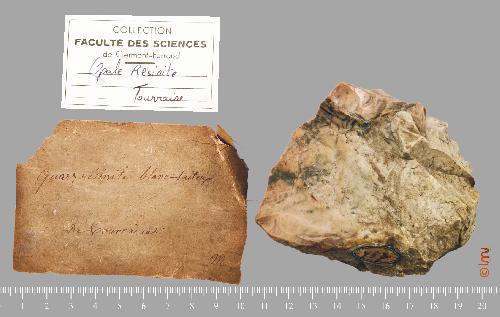 COLLECTION
FACULTÉ DES SCIENCES
de Clermont-Ferrand
Opale Résinite
Touraine
Quarz résinite blanc-laiteux
de Touraine
1 2 3 4 5 6 7 8 9 10 11 12 13 14 15 16 17 18 19 20